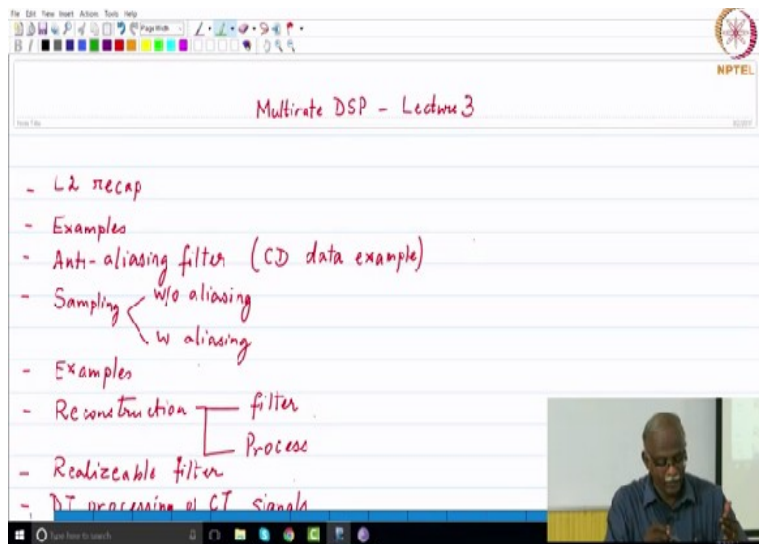 File Edit View Insert Actions Tools Help
Page Width
B I
NPTEL
Multirate DSP - Lecture 3
Note Title
- L2 recap
- Examples
- Anti-aliasing filter (CD data example)
- Sampling w/o aliasing
w aliasing
- Examples
- Reconstruction filter
Process
- Realizeable filter
- DT processing of CT signals
Type here to search